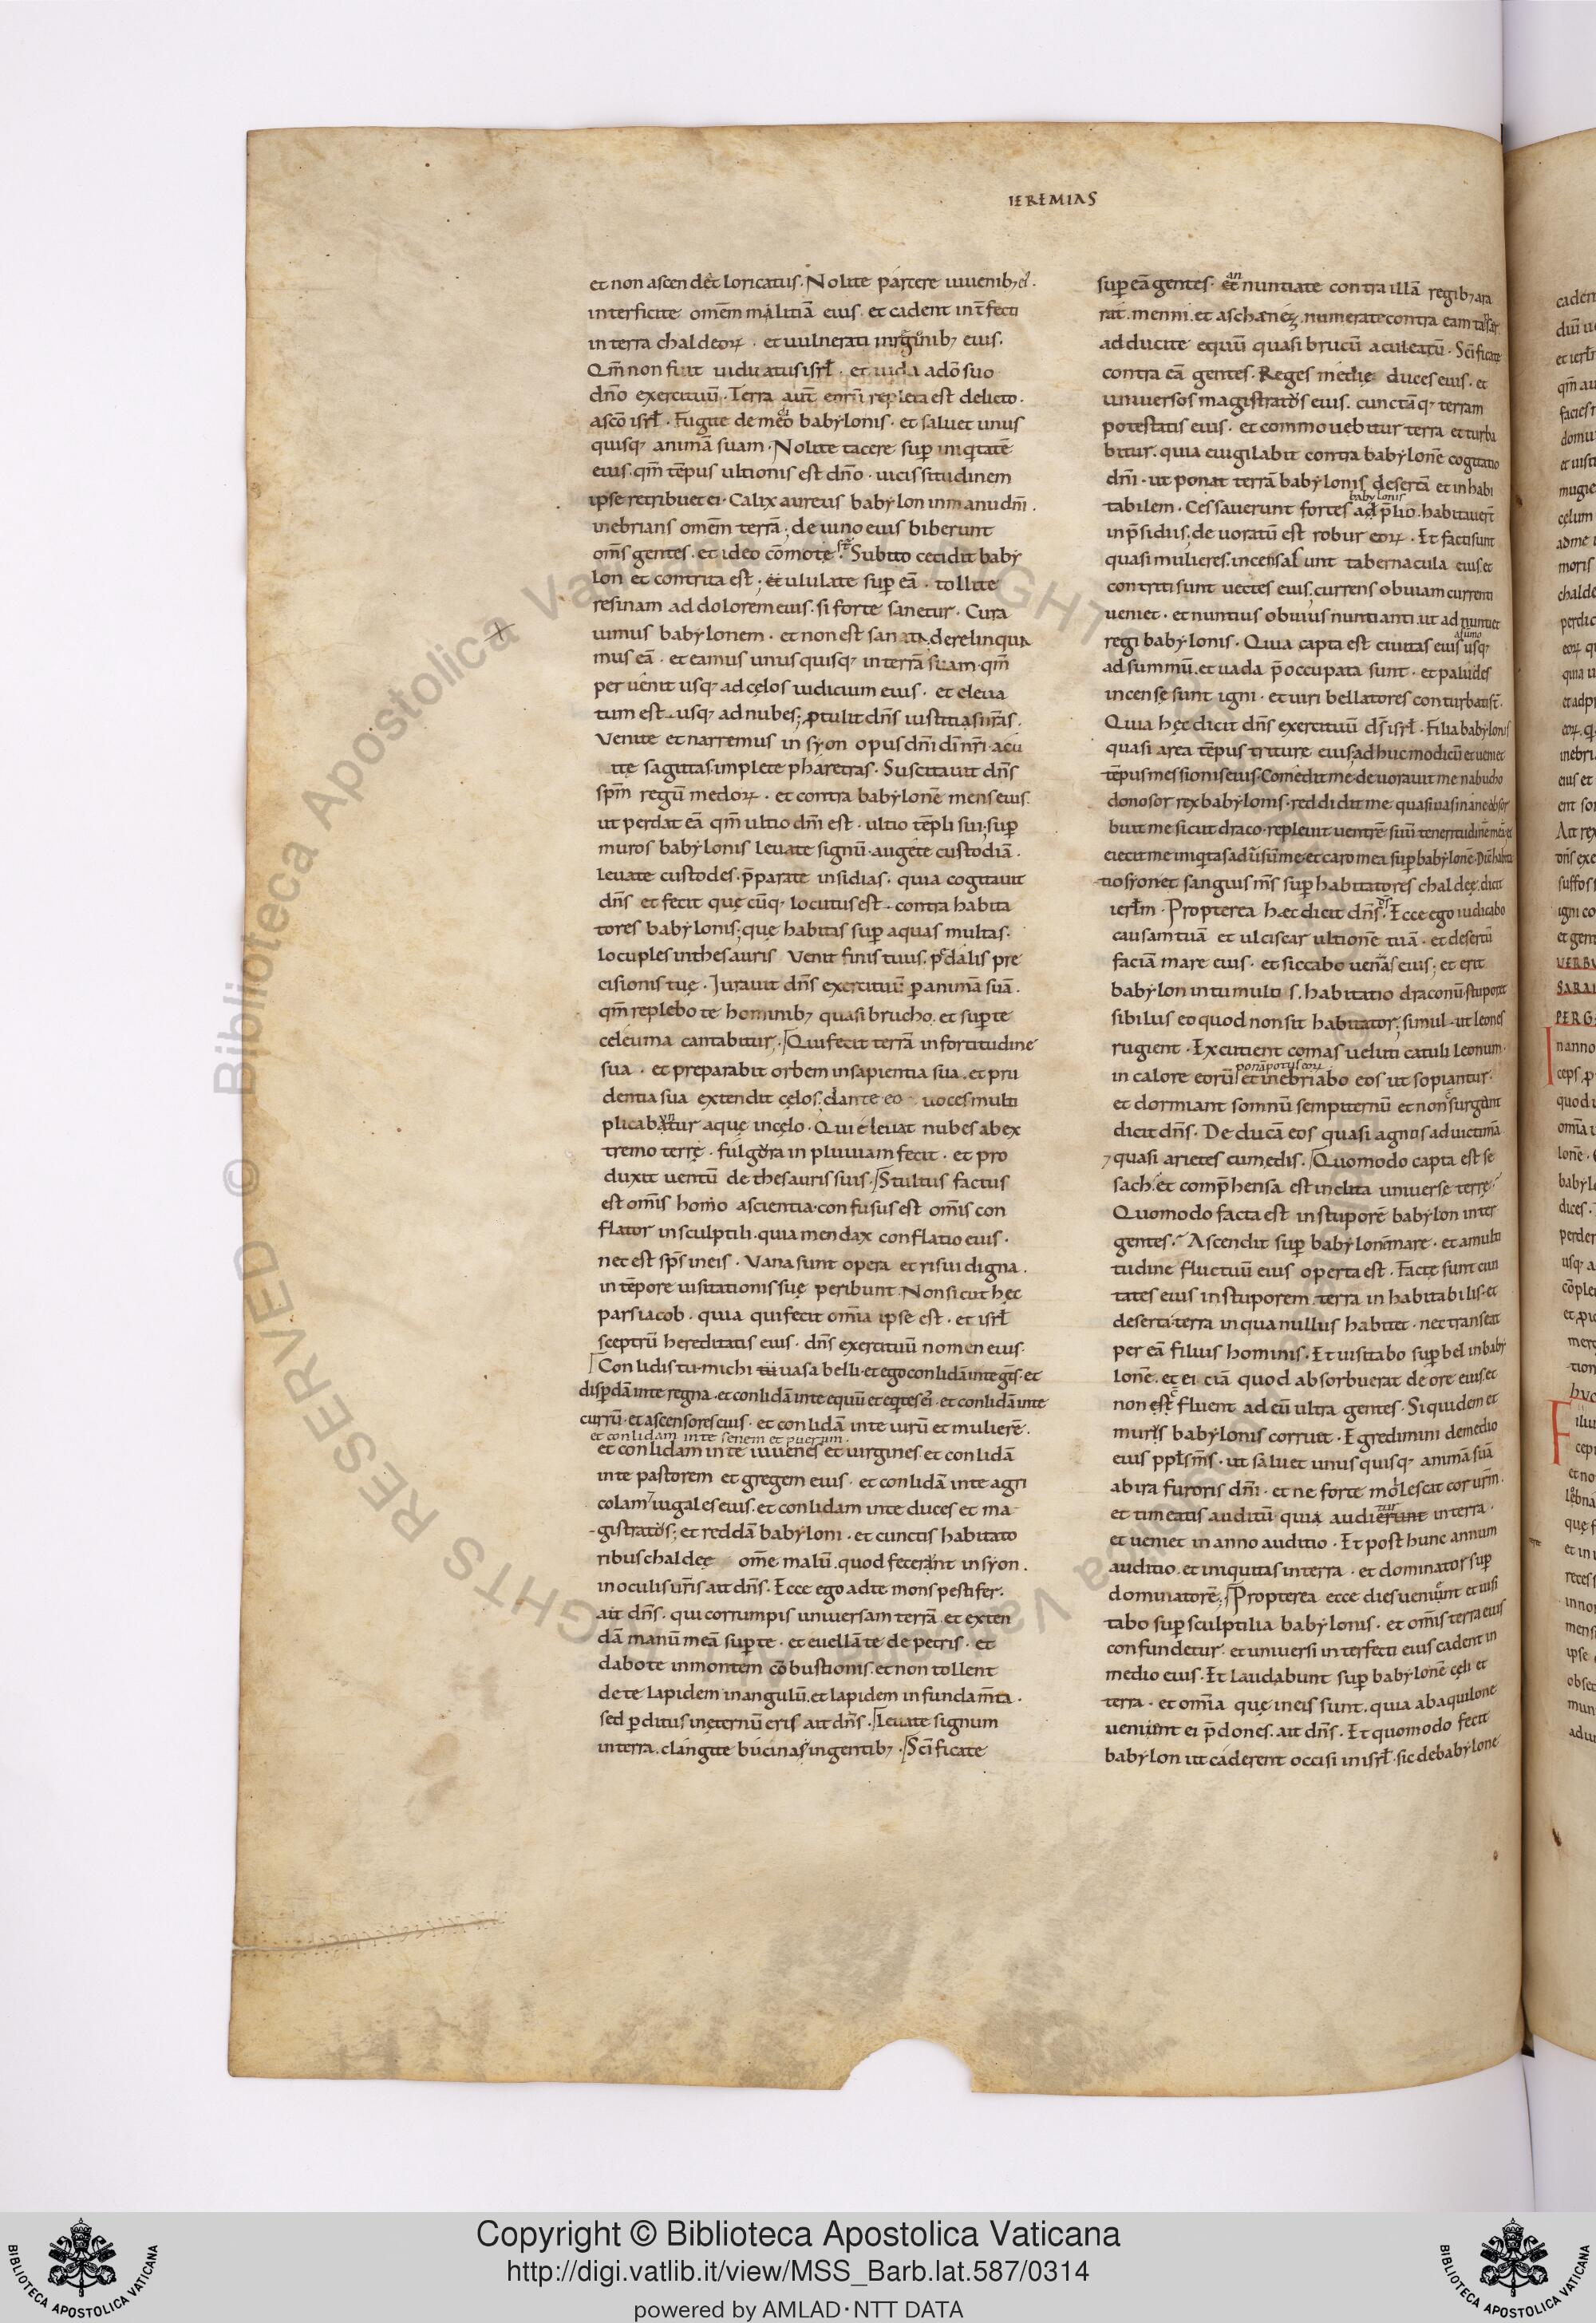 IEREMIAS
et non ascendet loricatus. Nolite parcere iuuenib; ei᷒.
interficite omēm malitiā eius. et cadent int̄fecti
in terra chaldeoꝝ. et uulnerati in regionib; eius.
Qm̄ non fuit uiduatus isrł. et iuda a dō suo
dn̄o exercituū. Terra aut̄ eorū repleta est delicto.
a scō isrł. Fugite de medio babylonis. et saluet unus
quisq; animā suam. Nolite tacere sup̄ iniqitatē
eius. qm̄ tēpus ultionis est dn̄o. uicissitudinem
ipse retribuet ei. Calix aureus babylon in manu dn̄i.
inebrians omēm terrā; de uino eius biberunt
om̄s gentes. et ideo cōmotę st̄. Subito cecidit baby
lon et contrita est; ululate sup̄ eā. tollite
resinam ad dolorem eius. si forte sanetur. Cura
uimus babylonem. et non est sanata. derelinqua
mus eā. et eamus unusquisq; in terrā suam. qm̄
peruenit usq; ad cęlos iudicium eius. et eleua
tum est usq; ad nubes; ꝓtulit dn̄s iustitias nr̄as.
Venite et narremus in syon opus dn̄i dī nr̄i. acu
ite sagittas. implete pharetras. Suscitauit dn̄s
spm̄ regū medoꝝ. et contra babylonē mens eius
ut perdat eā qm̄ ultio dn̄i est. ultio tēpli sui. sup̄
muros babylonis leuate signū. augete custodiā.
leuate custodes. p̄parate insidias. quia cogitauit
dn̄s et fecit quę cūq; locutus est. contra habita
tores babylonis; quę habitas sup̄ aquas multas.
locuples in thesauris uenit finis tuus. pedalis pre
cisionis tuę. Iurauit dn̄s exercituū ꝑ animā suā.
qm̄ replebo te hominib; quasi brucho. et sup̄ te
celeuma cantabitur; Qui fecit terrā in fortitudine
sua. et preparabit orbem in sapientia sua. et pru
dentia sua extendit cęlos. dante eo uoces multi
plicabantur aquę in cęlo. Qui eleuat nubes ab ex
tremo terrę. fulgora in pluuiam fecit. et pro
duxit uentū de thesauris suis. Stultus factus
est om̄is homo a scientia. confusus est om̄is con
flator in sculptili. quia mendax conflatio eius.
nec est sp̄s in eis. Vana sunt opera et risui digna.
in tēpore uisitationis suę peribunt. Non sicut hęc
pars iacob. quia qui fecit om̄ia ipse est. et isrł
sceptrū hereditatis eius. dn̄s exercituū nomen eius.
Conlidis tu michi uasa belli. et ego conlidā in te gentes. et
disp̄dā in te regna. et conlidā in te equū et eqitē ei᷒. et conlidā in te
currū. et ascensorē eius. et conlidā in te uirū et mulierē.
et conlidam in te senem et puerum.
et conlidam in te iuuenes et uirgines. et conlidā
in te pastorem et gregem eius. et conlidā in te agri
colam iugales eius. et conlidam in te duces et ma
gistratos; et reddā babyloni. et cunctis habitato
ribus chaldeę ome malū. quod fecerunt in syon.
in oculis ur̄is ait dn̄s. Ecce ego ad te mons pestifer.
ait dn̄s. qui corrumpis uniuersam terrā. et exten
dā manū meā sup̄ te. et euellā te de petris. et
dabo te in montem cōbustionis. et non tollent
de te lapidem in angulū. et lapidem in fundam̄ta.
sed ꝑditus in ęternū eris ait dn̄s. Leuate signum
in terra. clangite bucina in gentib;. Scīficate
sup̄ eā gentes. annuntiate contra illā regib; ara
rat. menni. et aschænez. numerate contra eam tapsar.
adducite equū quasi brucū aculeatū. Scīficate
contra eā gentes. Reges medię duces eius. et
uniuersos magistratos eius. cunctāq; terram
potestatis eius. et commouebitur terra et turba
bitur. quia euigilabit contra babylonē cogitatio
dn̄i. ut ponat terrā babylonis desertā et inhabi
tabilem. Cessauerunt fortes babylonis a p̄lio. habitauert̄
in p̄sidiis. deuoratū est robur eoꝝ. Et facti sunt
quasi mulieres. incensa sunt tabernacula eius. et
contriti sunt uectes eius. currens obuiam currenti
ueniet. et nuntius obuius nuntianti. ut adnuntiet
regi babylonis. Quia capta est ciuitas eius a sūmo usq;
ad summū. et uada p̄occupata sunt. et paludes
incensę sunt igni. et uiri bellatores conturbati st̄.
Quia hęc dicit dn̄s exercituū ds̄ isrł. Filia babylonis
quasi area tēpus triturę eius. adhuc modicū et ueniet
tēpus messionis eius. Comedit me. deuorauit me nabucho
donosor rex babylonis. reddidit me quasi uas inane. obsor
buit me sicut draco. repleuit uentrē suū teneritudine mea. et
eiecit me. iniqitas aduersū me. et caro mea sup̄ babylonē. Dicit habita
tio syon et sanguis m̄s sup̄ habitatores chaldeę. dicit
ierłm. Propterea hæc dicit dn̄s. Ecce ego iudicabo
causam tuā et ulciscar ultionē tuā. et desertū
faciā mare eius. et siccabo uenas eius; et erit
babylon in tumulos. habitatio draconū. stupor et
sibilus eo quod non sit habitator; simul ut leones
rugient. Excutient comas ueluti catuli leonum.
in calore eorū ponā potus eoꝝ et inebriabo eos ut sopiantur.
et dormiant somnū sempiternū et non surgant
dicit dn̄s. Deducā eos quasi agnos ad uictimā
quasi arietes cum edis. Quomodo capta est se
sach. et comp̄hensa est inclita uniuerse terrę.
Quomodo facta est in stuporē babylon inter
gentes. Ascendit sup̄ babylonē mare. et a multi
tudine fluctuū eius operta est. Factę sunt ciui
tates eius in stuporem. terra inhabitabilis. et
deserta. terra in qua nullus habitet. nec transeat
per eā filius hominis. Et uisitabo sup̄ bel in baby
lonē. et eiciā quod absorbuerat de ore eius. et
non fluent ad eū ultra gentes. Siquidem et
murus babylonis corruet. Egredimini de medio
eius ppłs m̄s. ut saluet unusquisq; animā suā
ab ira furoris dn̄i. et ne forte molescat cor urm̄.
et timeatis auditū. quia audietur in terra.
et ueniet in anno auditio. Et post hunc annum
auditio. et iniquitas in terra. et dominator sup̄
dominatorē; Propterea ecce dies ueniunt et uisi
tabo sup̄ sculptilia babylonis. et om̄is terra eius
confundetur. et uniuersi interfecti eius cadent in
medio eius. Et laudabunt sup̄ babylonē cęli et
terra. et om̄ia quę in eis sunt. quia ab aquilone
uenient ei p̄dones. ait dn̄s. Et quomodo fecit
babylon ut caderent occisi in isrł. sic de babylone
Copyright © Biblioteca Apostolica Vaticana
http://digi.vatlib.it/view/MSS_Barb.lat.587/0314
powered by AMLAD·NTT DATA